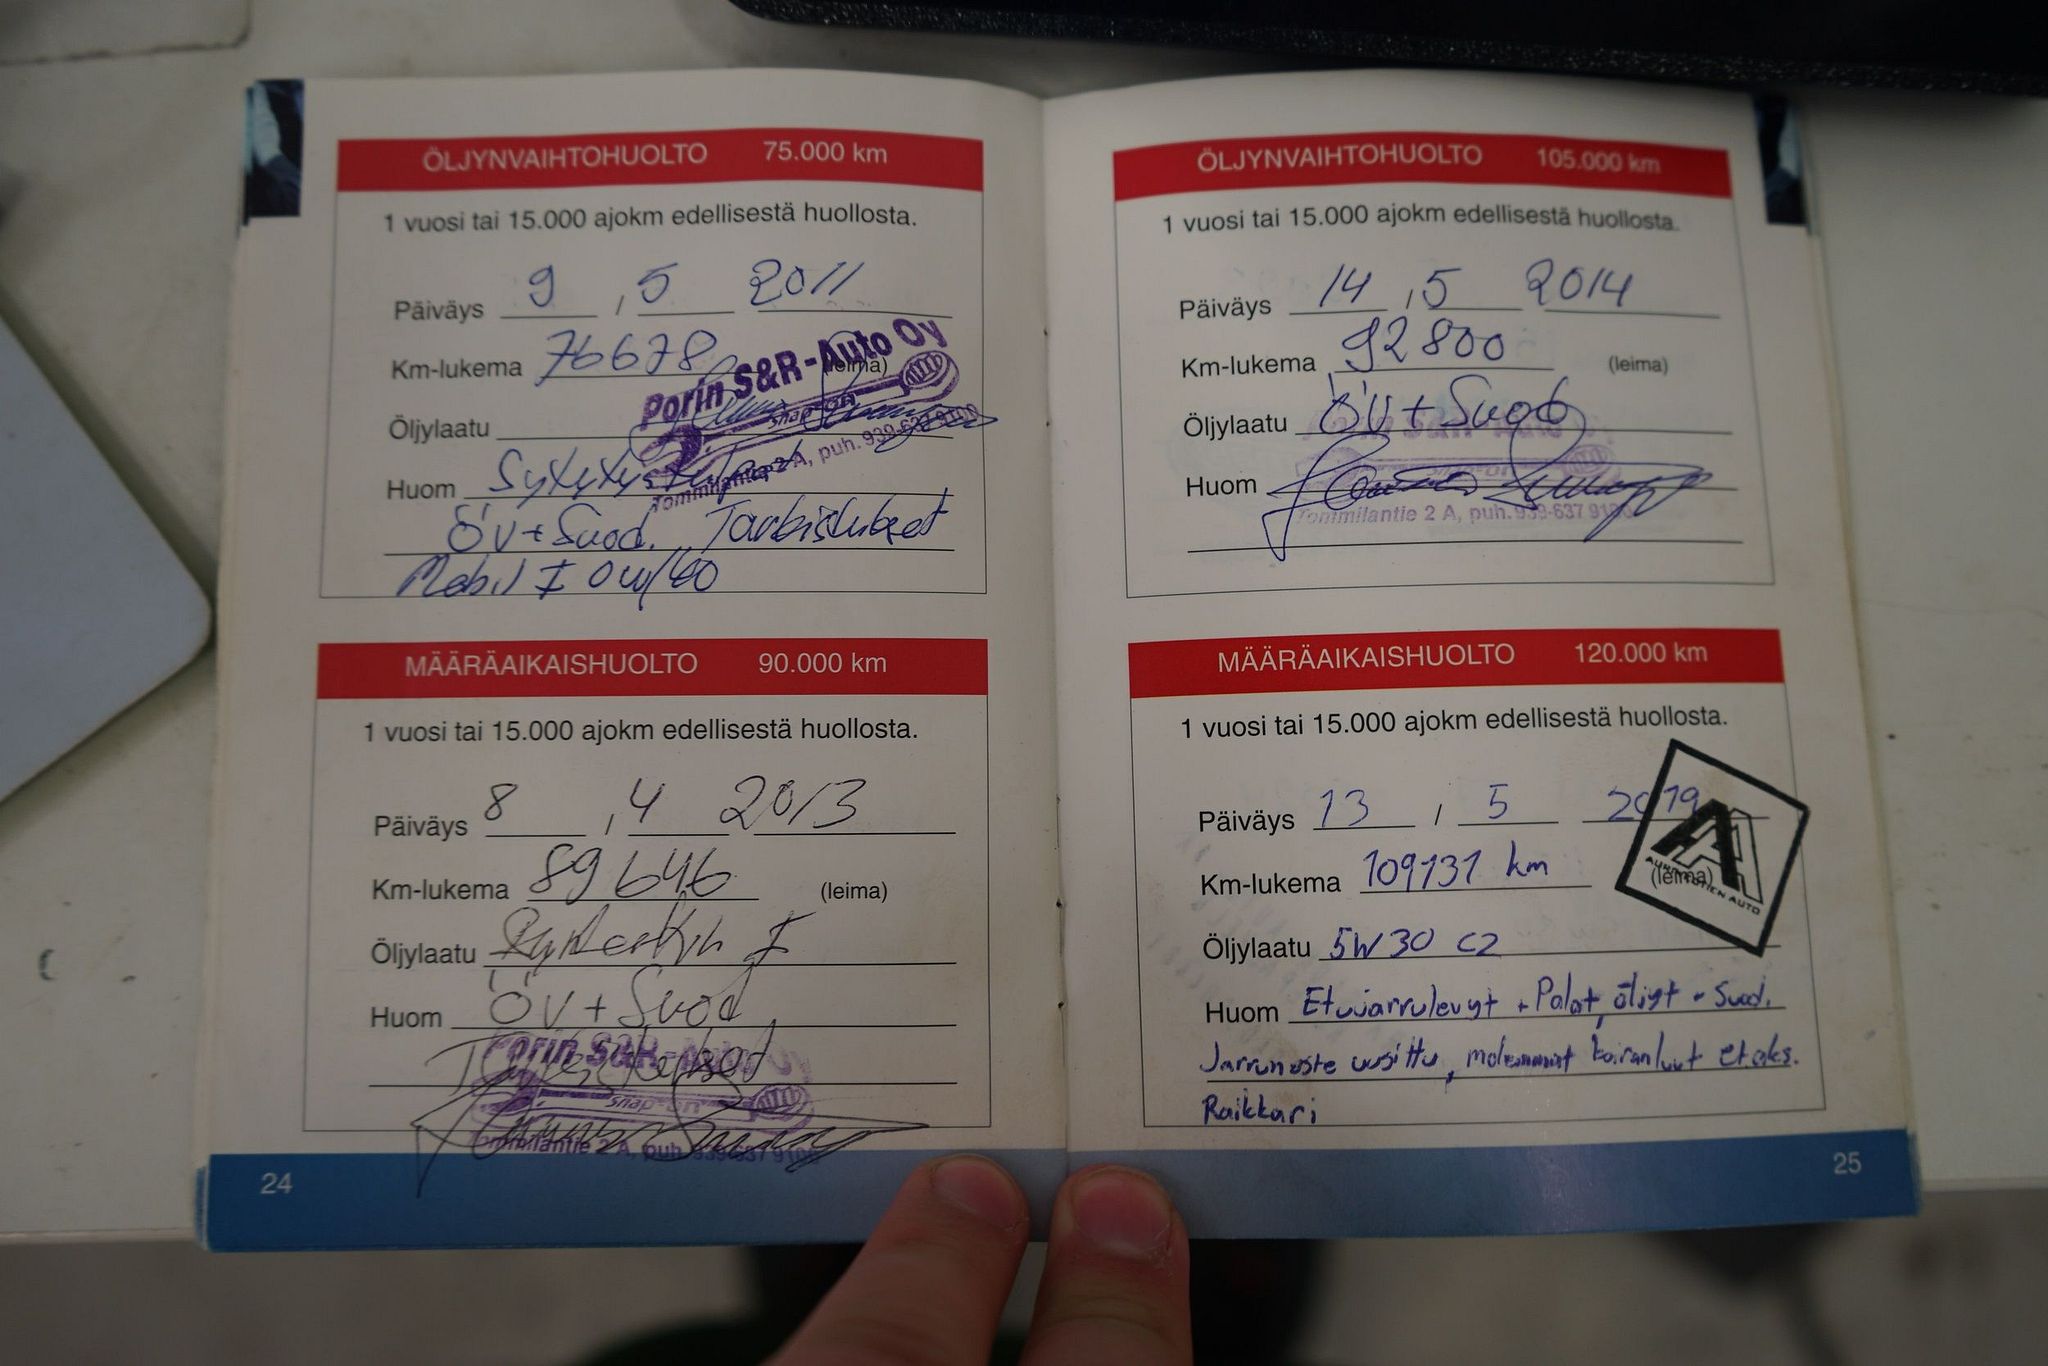 ÖLJYNVAIHTOHUOLTO 75.000 km
1 vuosi tai 15.000 ajokm edellisestä huollosta.
Päiväys 9 / 5 2011
Km-lukema 76678 (leima)
Porin S&R-Auto Oy
snap-on
Tommilantie 2 A, puh. 939-637 9100
Öljylaatu
Huom
ÖV + Suod. Tarkistukset
Mobil I 0W/40
MÄÄRÄAIKAISHUOLTO 90.000 km
1 vuosi tai 15.000 ajokm edellisestä huollosta.
Päiväys 8 / 4 2013
Km-lukema 89646 (leima)
Öljylaatu
Huom ÖV + Suod
Porin S&R-Auto Oy
snap-on
Tommilantie 2 A, puh. 939-637 9100
24
ÖLJYNVAIHTOHUOLTO 105.000 km
1 vuosi tai 15.000 ajokm edellisestä huollosta.
Päiväys 14 / 5 2014
Km-lukema 92800 (leima)
Öljylaatu ÖV + Suod
Huom
Tommilantie 2 A, puh. 939-637 9100
MÄÄRÄAIKAISHUOLTO 120.000 km
1 vuosi tai 15.000 ajokm edellisestä huollosta.
Päiväys 13 / 5 2019
Km-lukema 109131 km (leima)
Öljylaatu 5W30 C2
Huom Etujarrulevyt + Palat, öljyt + Suod.
Jarruneste uusittu, molemmat koiranluut etaks.
Raikkari
25